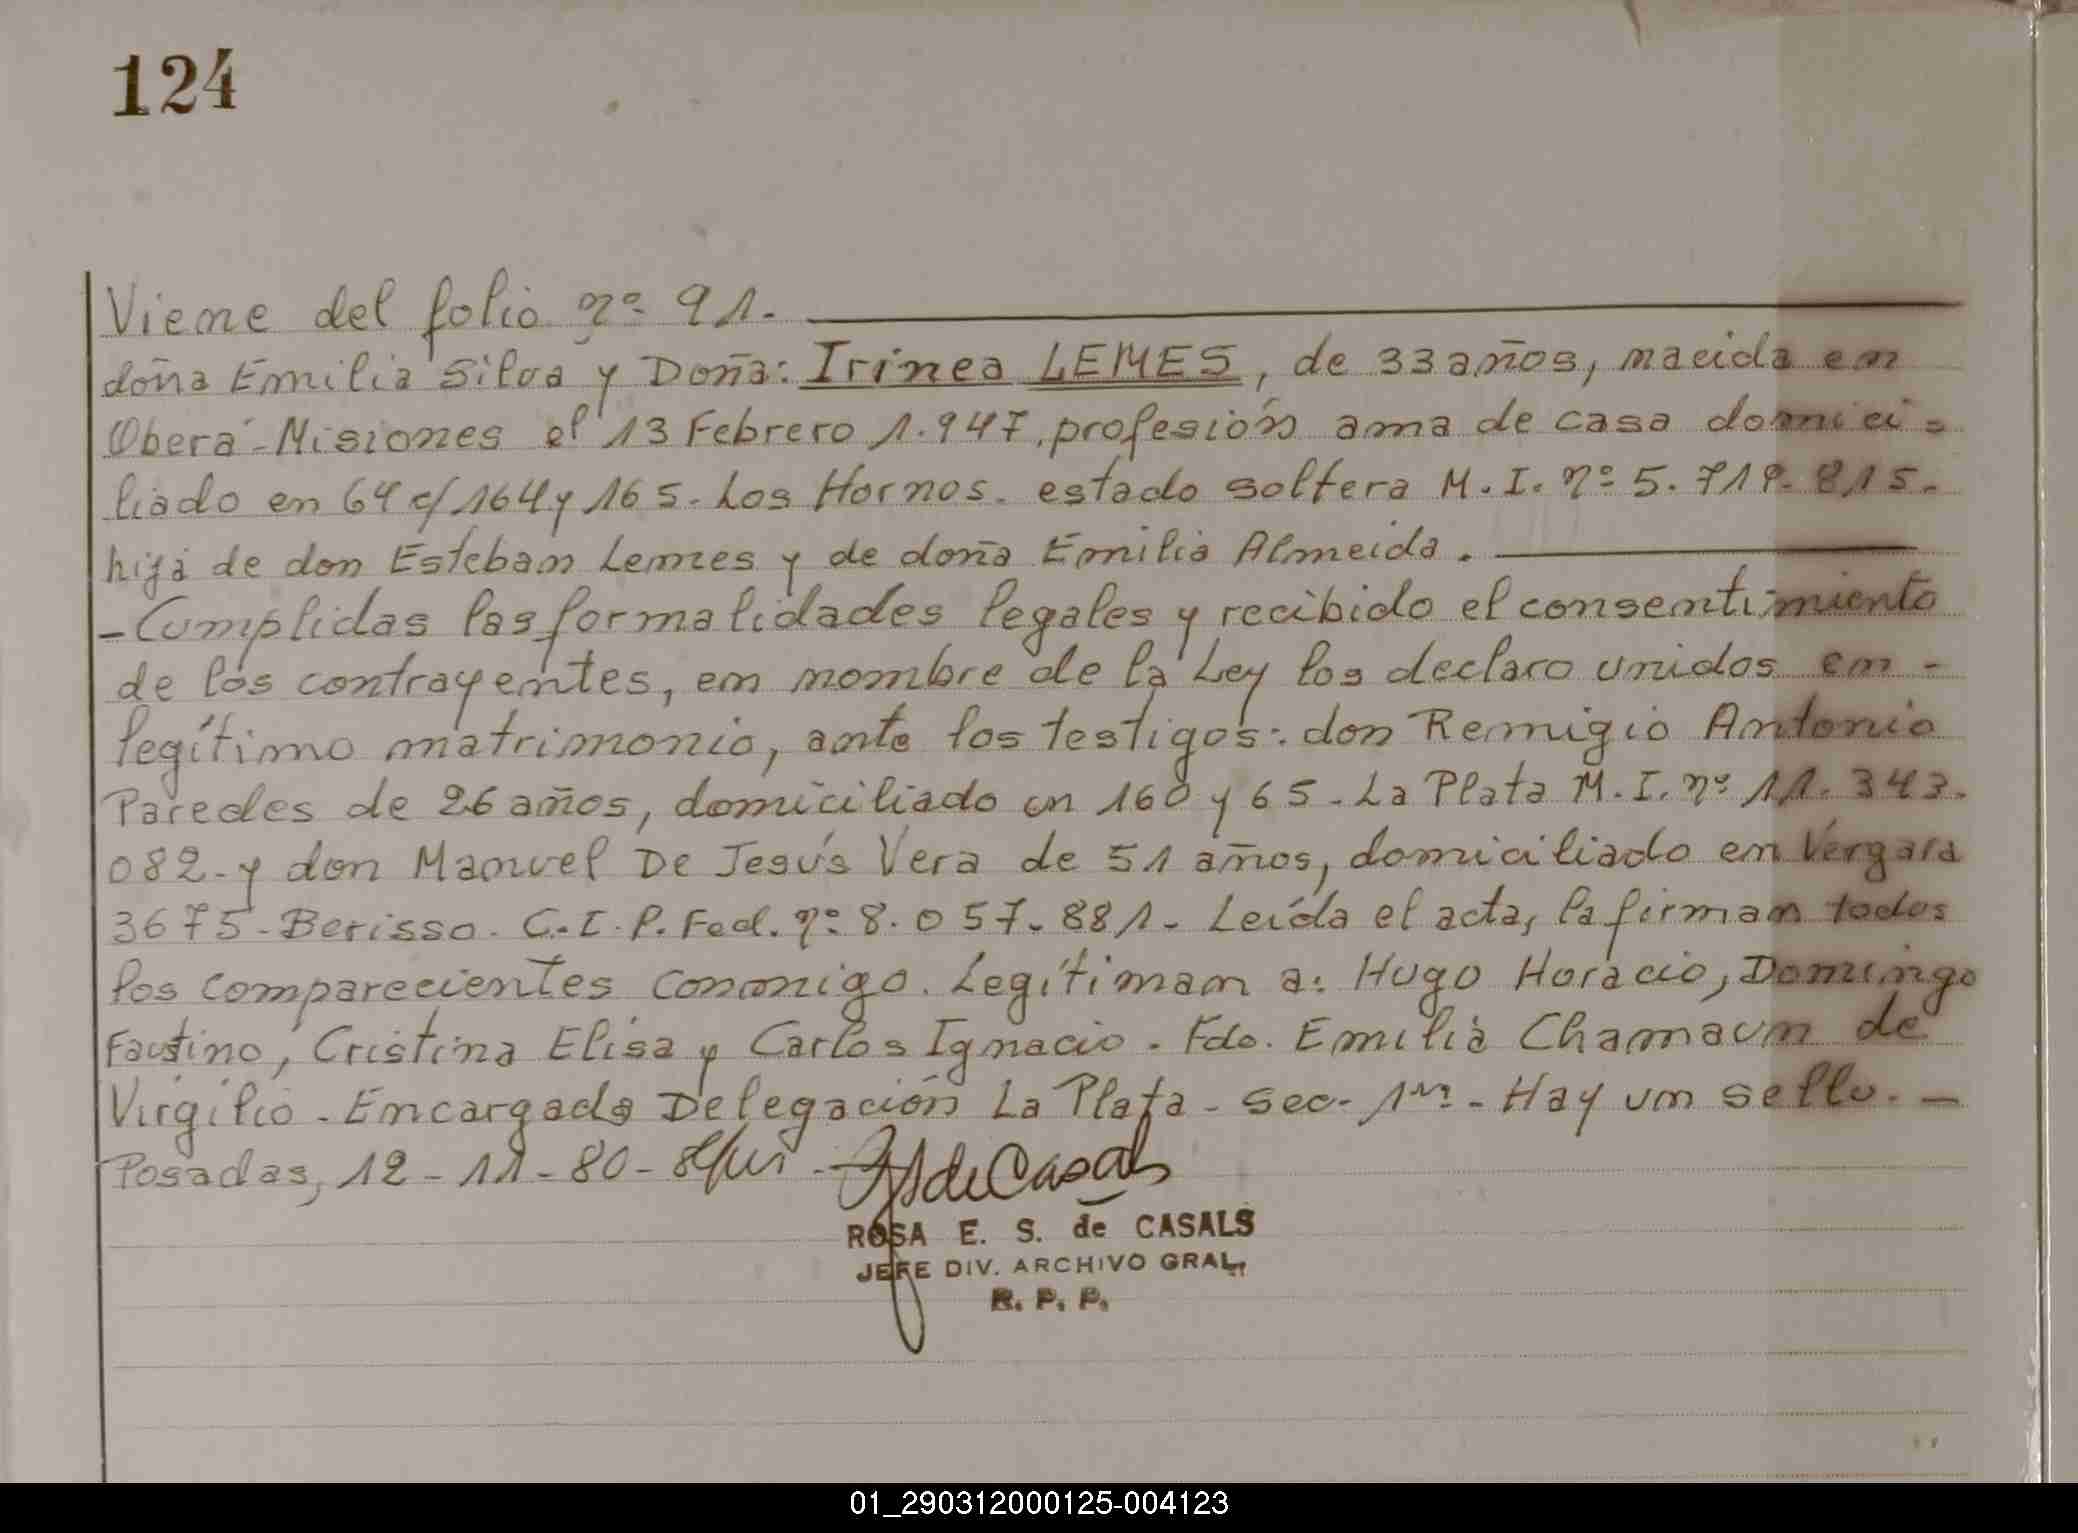 124
Viene del folio nº 91.
doña Emilia Silva y Doña: Irinea LEMES, de 33 años, nacida en
Oberá-Misiones el 13 Febrero 1.947, profesión ama de casa domici-
liado en 64 c/ 164 y 165. Los Hornos. estado soltera M. I. nº 5. 719. 815.
hija de don Esteban Lemes y de doña Emilia Almeida.
-Cumplidas las formalidades legales y recibido el consentimiento
de los contrayentes, en nombre de la Ley los declaro unidos en -
legítimo matrimonio, ante los testigos: don Remigio Antonio
Paredes de 26 años, domiciliado en 160 y 65. La Plata M. I. nº 11. 343.
082. y don Manuel De Jesús Vera de 51 años, domiciliado en Vergara
3675-Berisso. C. I. P. Fed. nº 8. 057. 881. Leída el acta, la firman todos
los comparecientes conmigo. Legítiman a: Hugo Horacio, Domingo
Faustino, Cristina Elisa y Carlos Ignacio. Fdo. Emilia Chamaun de
Virgilio. Encargada Delegación La Plata - Sec. 1ra. - Hay un sello. -
Posadas, 12-11-80-
de Casals
ROSA E. S. de CASALS
JEFE DIV. ARCHIVO GRAL.
R. P. P.
01_290312000125-004123